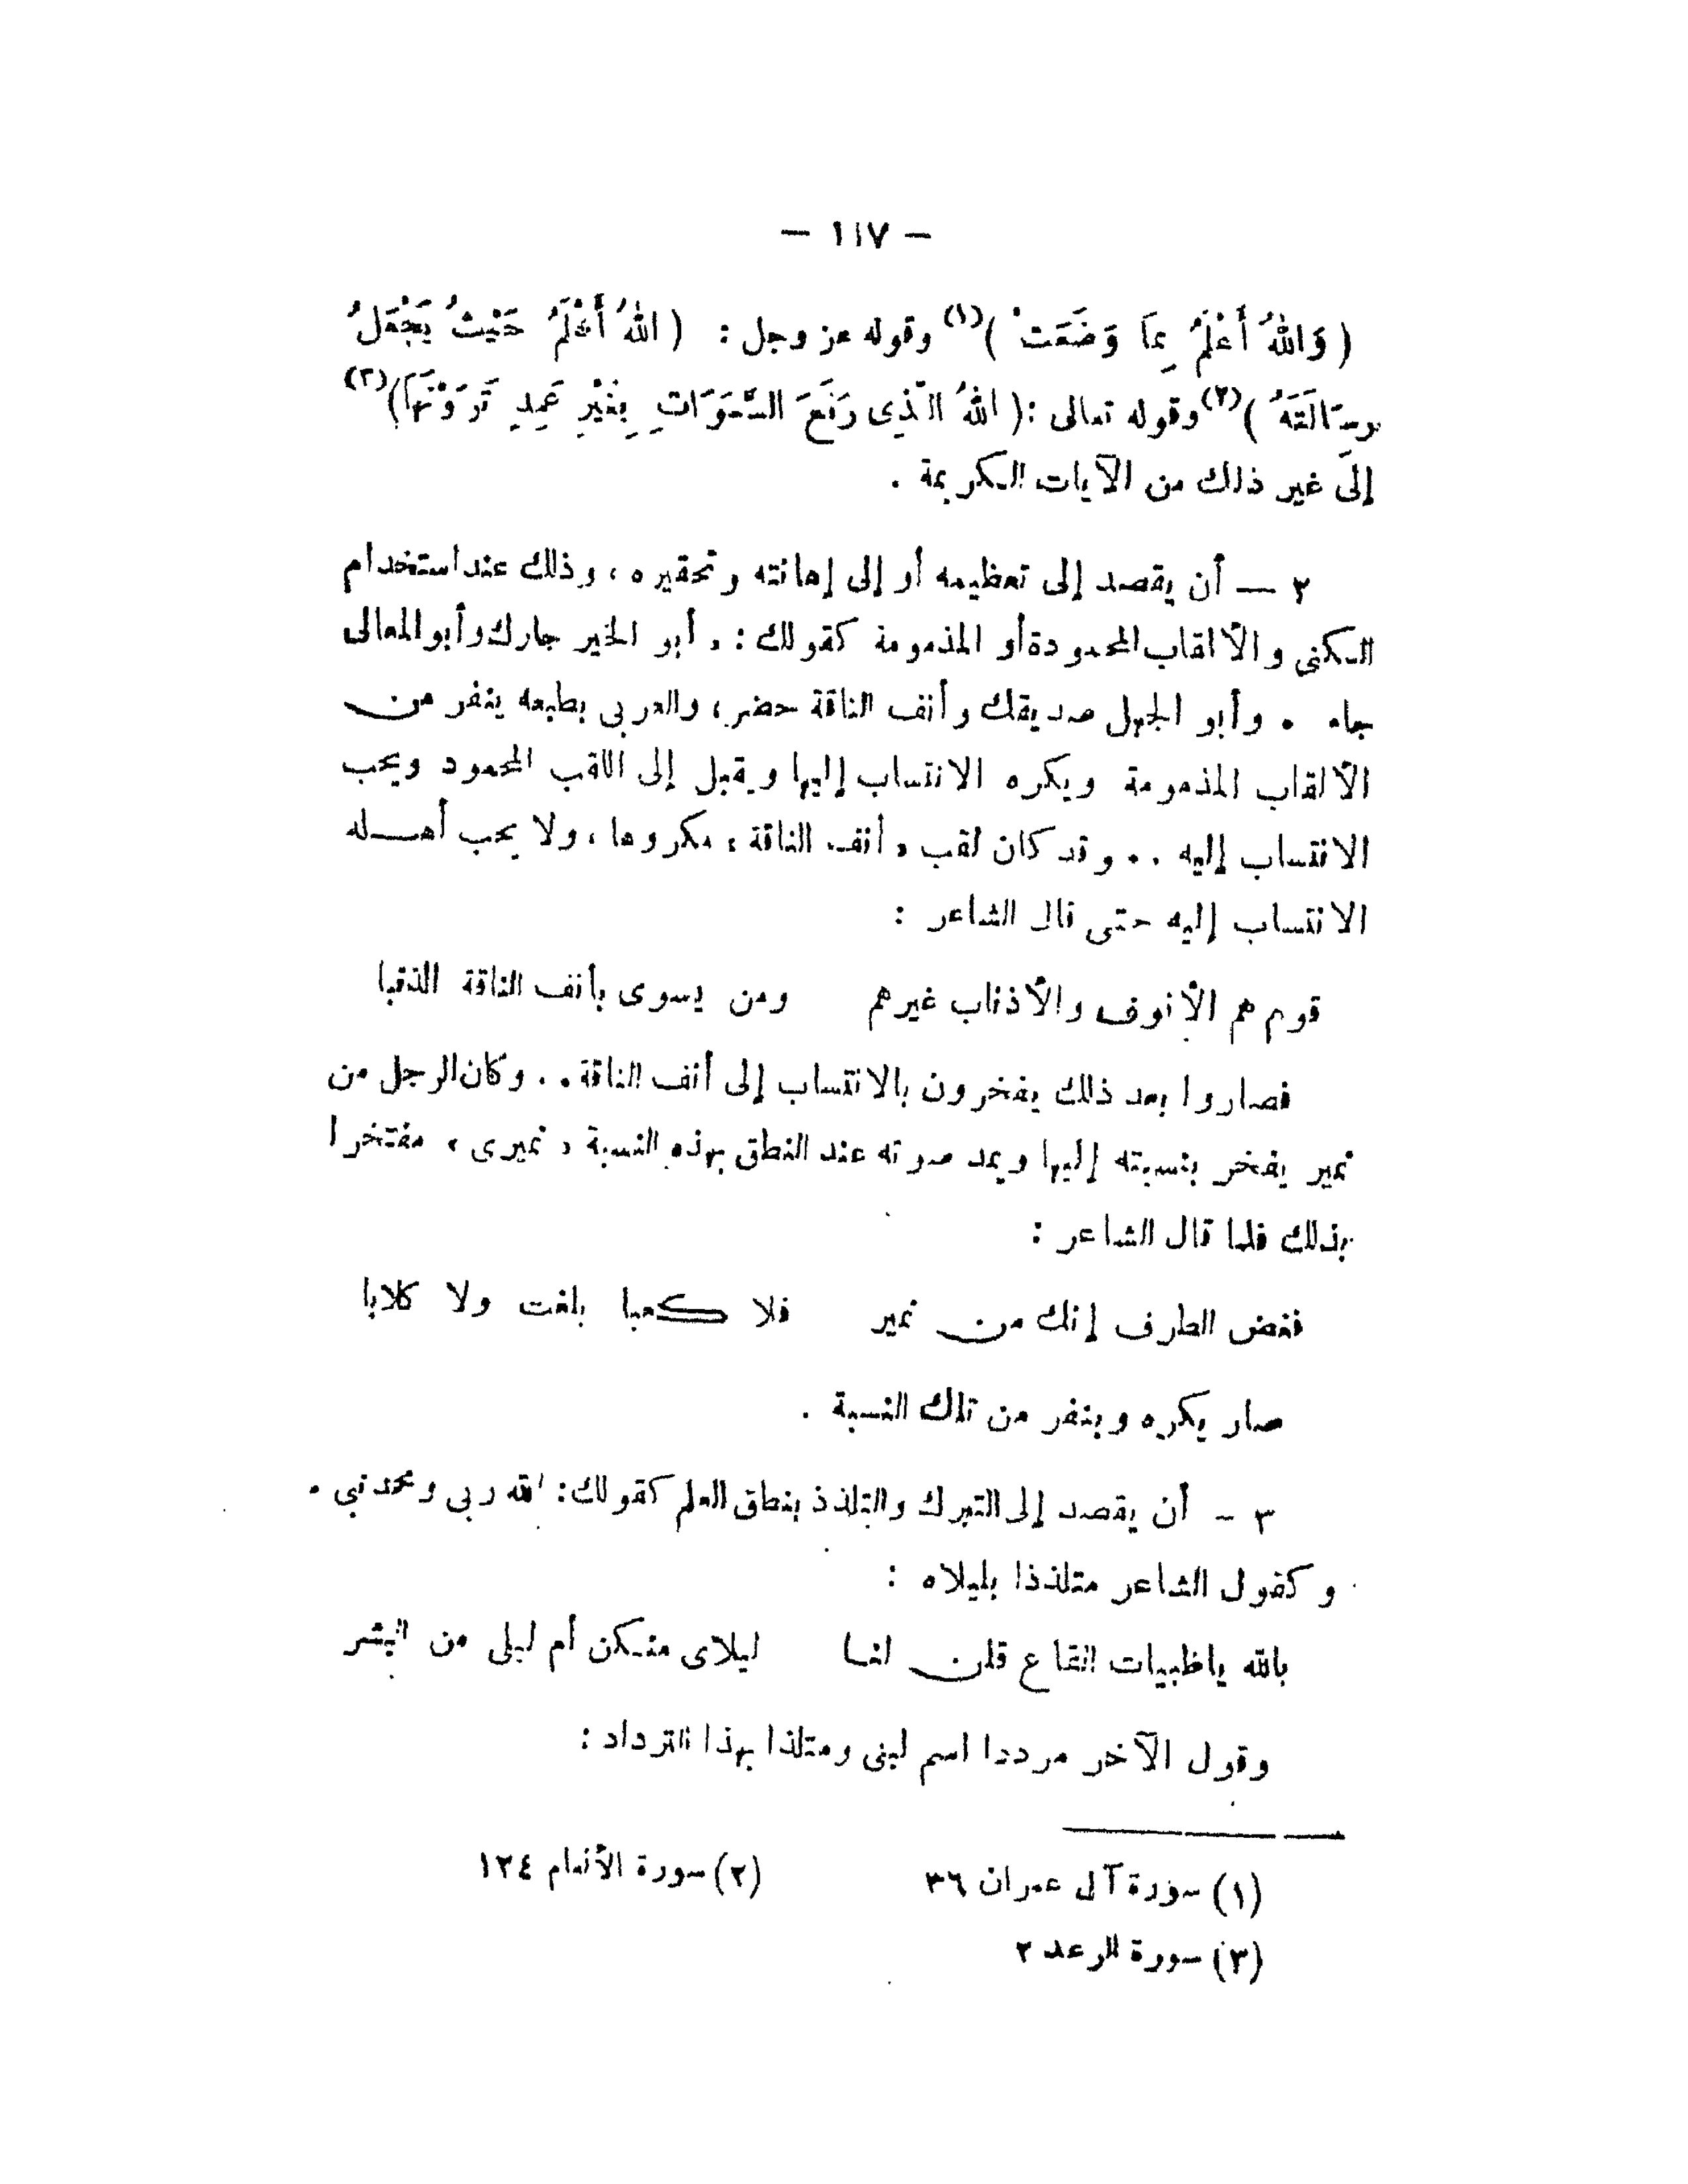 — ١١٧ —
( وَاللهُ أَعْلَمُ بِمَا وَضَعَتْ )(١) وقوله عز وجل : ( اللهُ أَعْلَمُ حَيْثُ يَجْعَلُ
رِسَالَتَهُ )(٢) وقوله تعالى : ( اللهُ الَّذِى رَفَعَ السَّمَوَاتِ بِغَيْرِ عَمِدٍ تَرَوْنَهَا )(٣)
إلى غير ذلك من الآيات الكريمة .
٢ — أن يقصد إلى تعظيمه أو إلى إهانته وتحقيره ، وذلك عند استخدام
الكنى والألقاب المحمودة أو المذمومة كقولك : « أبو الخير جارك وأبو المعالى
جاء . وأبو الجهل صديقك وأنف الناقة حضر ، والعربى بطبعه ينفر من
الألقاب المذمومة ويكره الانتساب إليها ويقبل إلى اللقب المحمود ويحب
الانتساب إليه . . وقد كان لقب « أنف الناقة » مكروها ، ولا يحب أهله
الانتساب إليه حتى قال الشاعر :
قوم هم الأنوف والأذناب غيرهم ومن يسوى بأنف الناقة الذنبا
فصاروا بعد ذلك يفخرون بالانتساب إلى أنف الناقة . . وكان الرجل من
نمير يفخر بنسبته إليها ويمد صوته عند النطق بهذه النسبة « نميرى » مفتخرا
بذلك فلما قال الشاعر :
فغض الطرف إنك من نمير فلا كعبا بلغت ولا كلابا
صار يكره وينفر من تلك النسبة .
٣ - أن يقصد إلى التبرك والتلذذ بنطق العلم كقولك : الله ربى ومحمد نبى .
وكقول الشاعر متلذذا بليلاه :
بالله ياظبيات القاع قلن لنا ليلاى منكن أم ليلى من البشر
وقول الآخر مرددا اسم لبنى ومتلذا بهذا الترداد :
(١) سورة آل عمران ٣٦ (٢) سورة الأنعام ١٢٤
(٣) سورة الرعد ٢